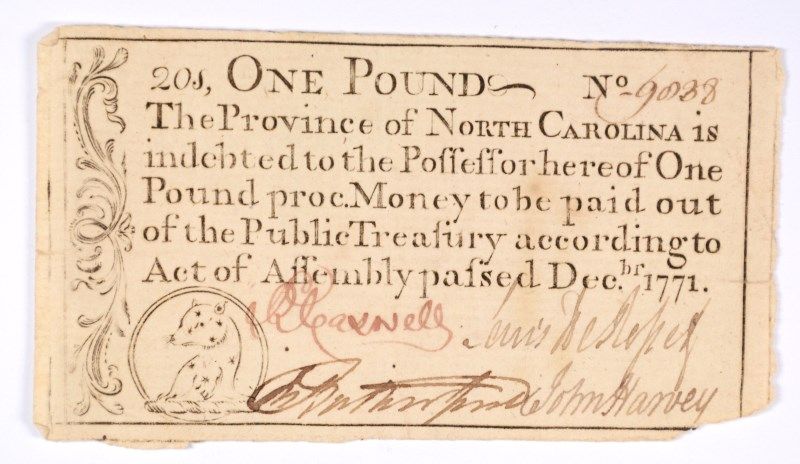 20s, ONE POUND No 9088
The Province of NORTH CAROLINA is
indebted to the Poſſeſſor hereof One
Pound proc. Money to be paid out
of the Public Treaſury according to
Act of Aſſembly paſſed Dec.br 1771.
R Caswell Lewis De Rosset
Rutherfurd John Harvey